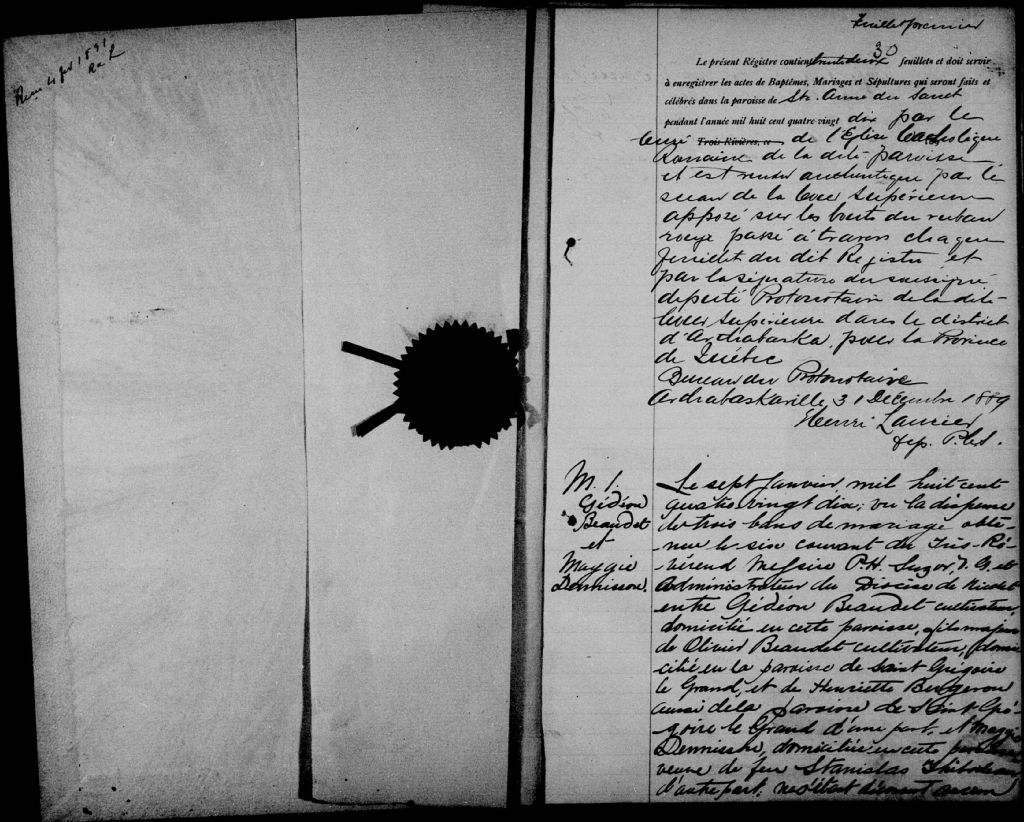 1891
Feuillet premier
30
Le présent Régistre contient trente deux feuillets et doit servir
à enregistrer les actes de Baptêmes, Mariages et Sépultures qui seront faits et
célébrés dans la paroisse de Ste. Anne du Sault
pendant l'année mil huit cent quatre-vingt dix par le
Curé Trois-Rivières, ce de l'Eglise Catholique
Romaine de la dite paroisse
et est rendu authentique par le
sceau de la Cour Supérieure
apposé sur les bouts du ruban
rouge passé à travers chaque
feuillet du dit Registre et
par la signature du soussigné
député Protonotaire de la dite
Cour Supérieure dans le district
d'Arthabaska, pour la Province
de Québec
Bureau du Protonotaire
Arthabaskaville, 31 Décembre 1889
Henri Laurier
dep. P.C.S.
M. 1.
Gédéon
Beaudet
et
Maggie
Dennisson.
Le sept Janvier, mil huit cent
quatre-vingt dix; vu la dispense
de trois bans de mariage obte-
-nue le six courant du Très-Ré-
-vérend Messire P.H. Suzor, V. G. et
Administrateur du Diocèse de Nicolet
entre Gédéon Beaudet cultivateur,
domicilié en cette paroisse, fils majeur
de Olivier Beaudet cultivateur, domi-
cilié en la paroisse de Saint Grégoire
le Grand, et de Henriette Bergeron
aussi de la paroisse de Saint Gré-
-goire le Grand d'une part, et Maggie
Dennisson, domiciliée en cette paroisse
veuve de feu Stanislas Thibodeau
d'autre part; ne s'étant découvert aucun